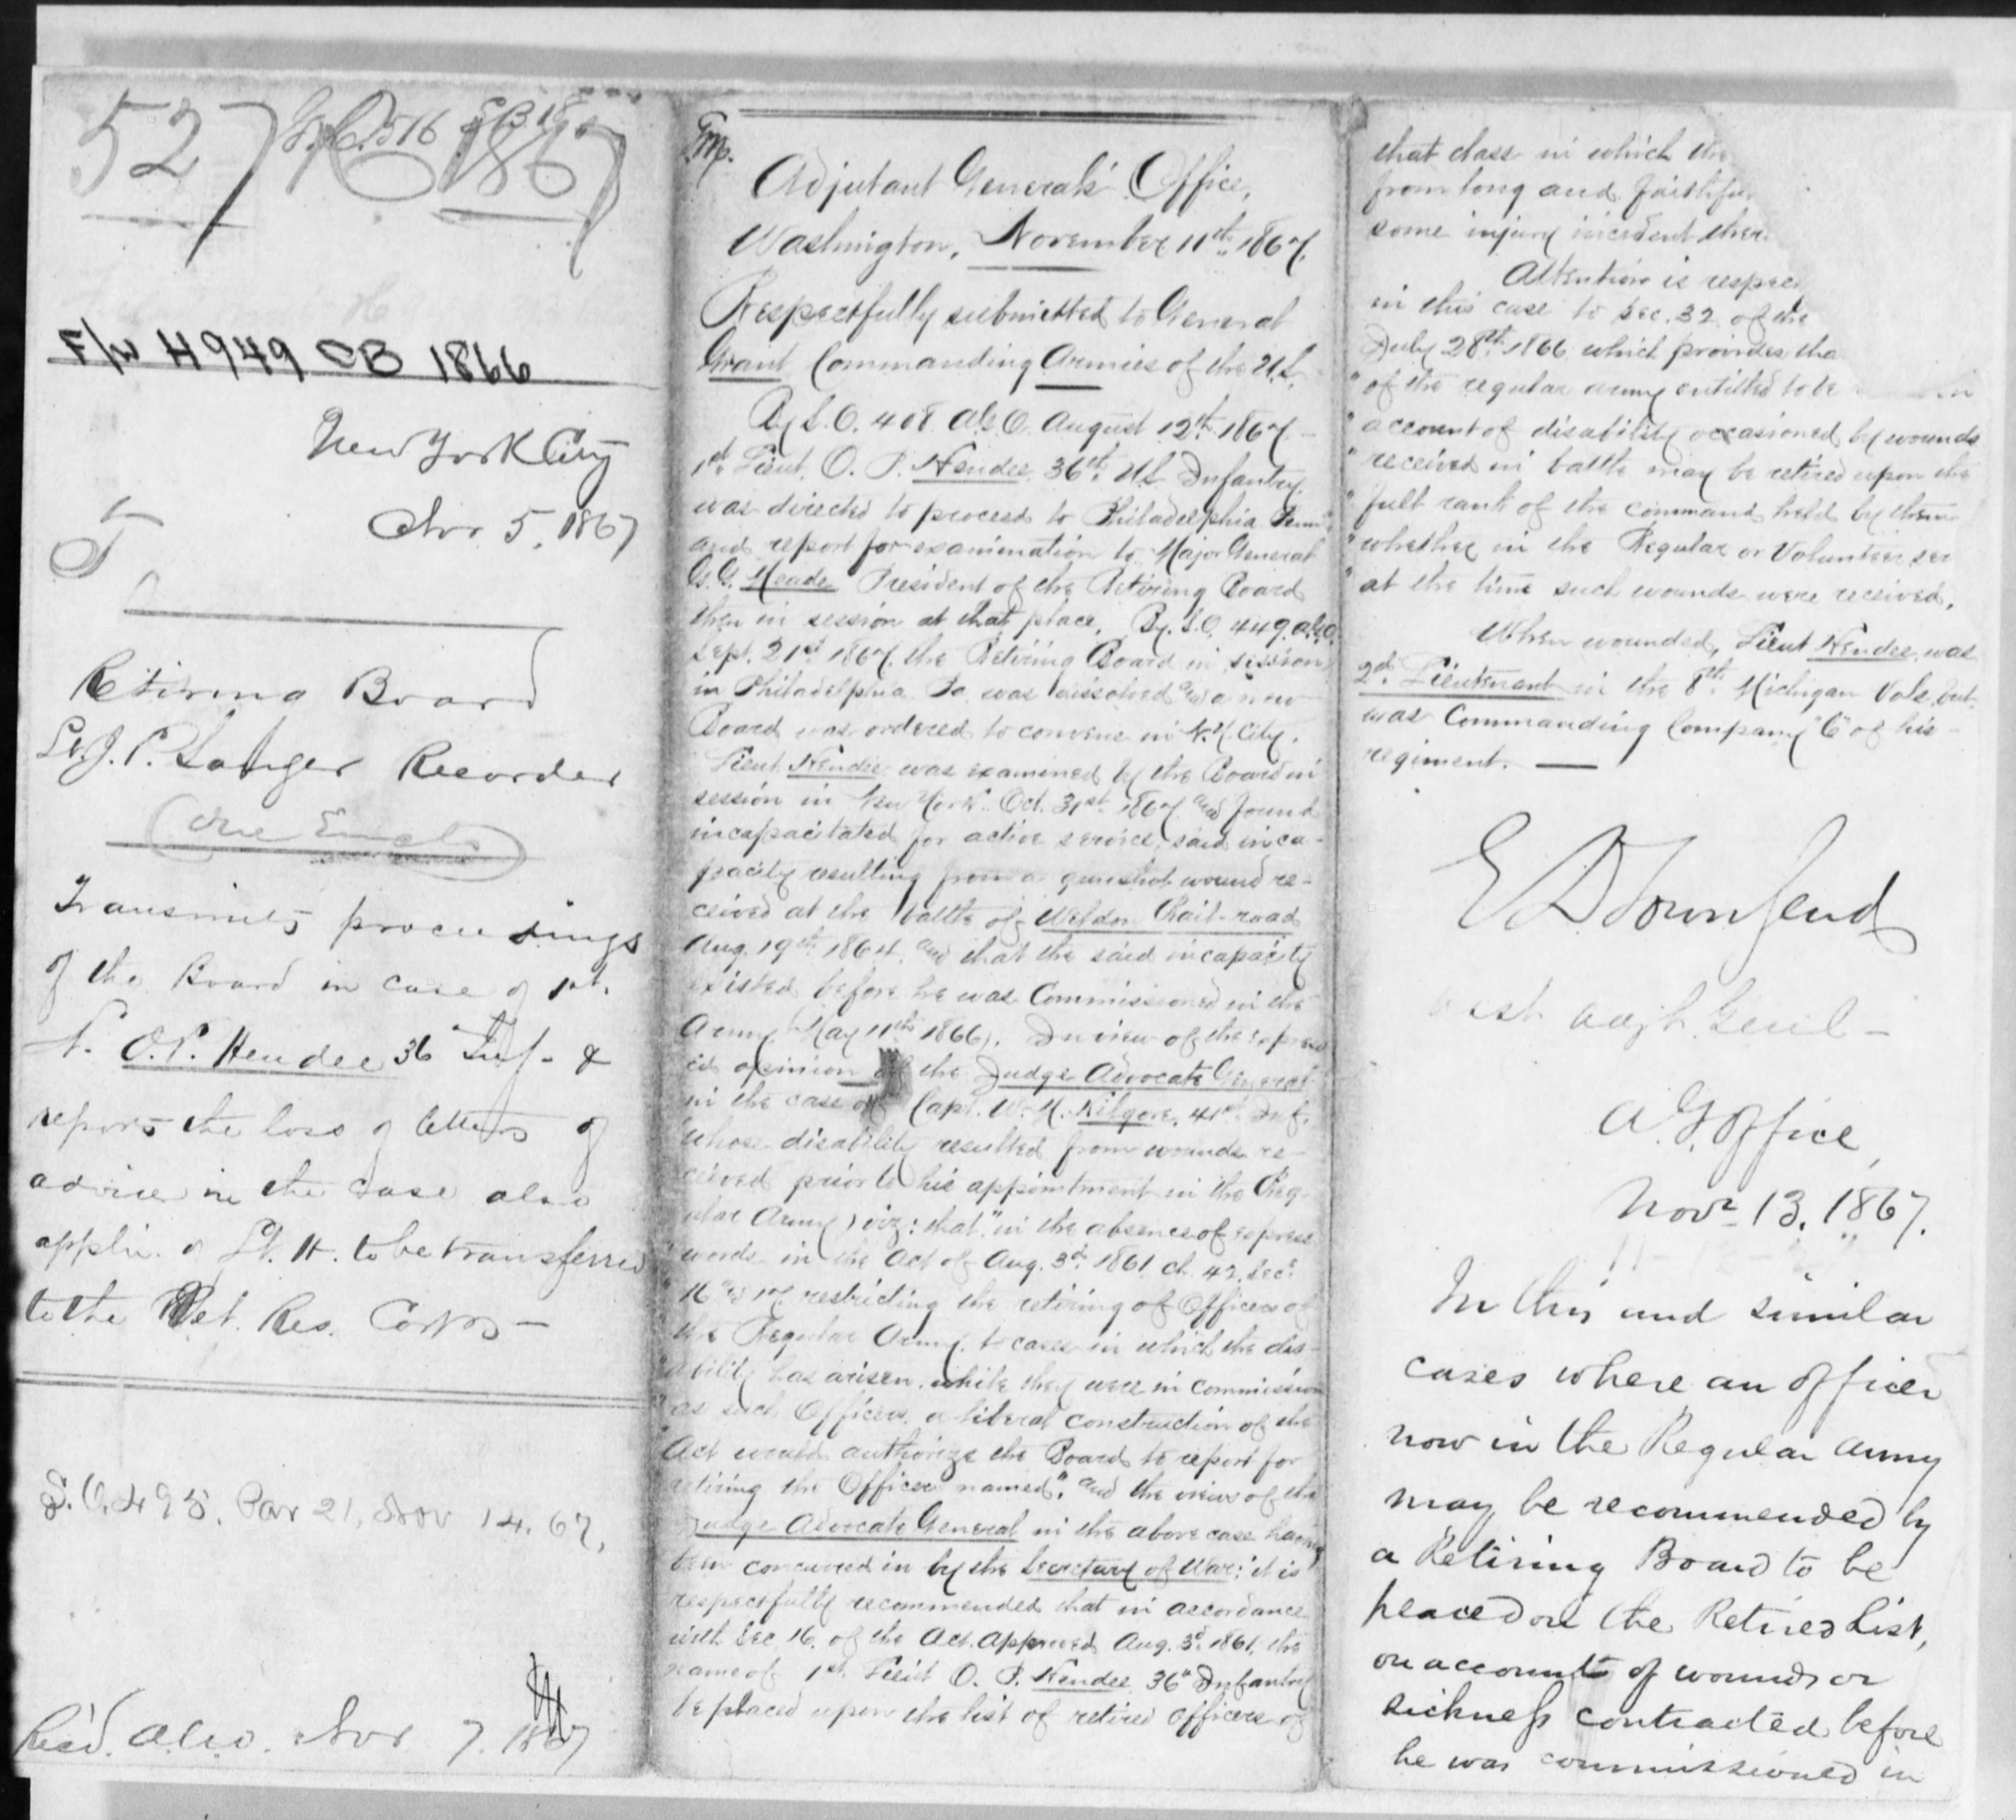 527
1867
F/W H949 CB 1866
New York City
Nov 5, 1867
Retiring Board
Lt. J. P. Sanger Recorder
Transmits proceedings
of the Board in case of 1st
Lt. O. P. Hendee 36 Inf. &
reports the loss of letters of
advice in the case also
applic. of Lt. H. to be transferred
to the Vet. Res. Corps —
S.O. 495, Par 21, Nov 14. 67.
Rec'd. A.G.O. Nov 7. 1867
Adjutant General's Office,
Washington, November 11th 1867.
Respectfully submitted to General
Grant Commanding Armies of the U.S.
By S.O. 408 A.G.O. August 12th 1867 —
1st Lieut. O. P. Hendee 36th U.S. Infantry
was directed to proceed to Philadelphia Penn
and report for examination to Major General
G. G. Meade President of the Retiring Board
then in session at that place. By S.O. 449 A.G.O.
Sept. 21st 1867. the Retiring Board in session
in Philadelphia Pa was dissolved and a new
Board was ordered to convene in N.Y. City.
Lieut. Hendee was examined by the Board in
session in New York Oct. 31st 1867 and found
incapacitated for active service, said inca-
pacity resulting from a gunshot wound re-
ceived at the battle of Weldon Rail-road
Aug. 19th 1864. and that the said incapacity
existed before he was Commissioned in the
Army (May 11th 1866). In view of the express
ed opinion of the Judge Advocate General
in the case of Capt. W. H. Kilgore, 41st Inf.
(whose disability resulted from wounds re-
ceived prior to his appointment in the Reg-
ular Army) viz: that "in the absence of express
"words in the Act of Aug. 3d 1861 ch. 42. Secs
"16 & 17 restricting the retiring of Officers of
the Regular Army, to cases in which the dis-
"ability has arisen while they were in commission
"as such Officers, a liberal construction of the
"Act would authorize the Board to report for
retiring the Officer named", and the views of the
Judge Advocate General in the above case having
been concurred in by the Secretary of War; it is
respectfully recommended that in accordance
with Sec 16. of the Act Approved Aug. 3d 1861, the
name of 1st Lieut O. P. Hendee 36th Infantry
be placed upon the list of retired Officers of
that class in which the
from long and faithful
some injury incident there
Attention is respec
in this case to Sec. 32 of the
July 28th 1866 which provides tha
"of the regular army entitled to be
"account of disability occasioned by wounds
"received in battle may be retired upon the
"full rank of the command held by them
"whether in the Regular or Volunteer ser
"at the time such wounds were received.
When wounded, Lieut Hendee was
2d Lieutenant in the 8th Michigan Vols. but
was Commanding Company "C" of his
regiment. —
E D Townsend
Asst. Adjt. Genl —
A. G. Office,
Novr 13. 1867.
In this and similar
cases where an officer
now in the Regular Army
may be recommended by
a Retiring Board to be
placed on the Retired List,
on account of wounds or
sickness contracted before
he was commissioned in